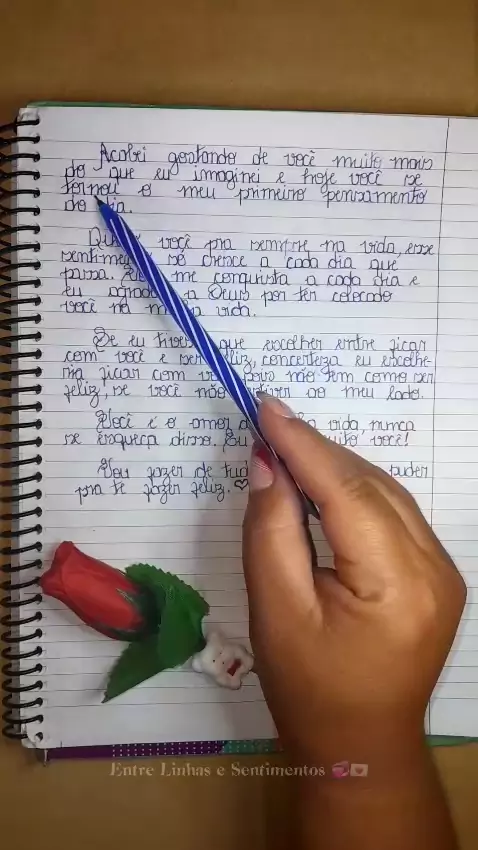 Acabei gostando de você muito mais
do que eu imaginei e hoje você se
tornou o meu primeiro pensamento
do dia.
você pra sempre na vida, esse
só cresce a cada dia que
passa. me conquista a cada dia e
eu a Deus por ter colocado
você na vida.
Se eu que escolher entre ficar
com você e ser feliz, concerteza eu escolhe-
ria ficar com pois não tem como ser
feliz, se você não ao meu lado.
Você é o amor vida, nunca
se esqueça disso. Eu você!
Vou fazer de puder
pra te fazer feliz. ♡
Entre Linhas e Sentimentos 💞💌